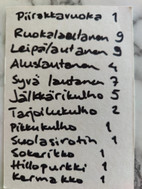 Piirakkavuoka 1
Ruokalautanen 9
Leipälautanen 9
Aluslautanen 4
Syvä lautanen 7
Jälkkärikulho 5
Tarjoilukulho 2
Pikkukulho 1
Suolasirotin 1
Sokerikko 1
Hillopurkki 1
Kermakko 1